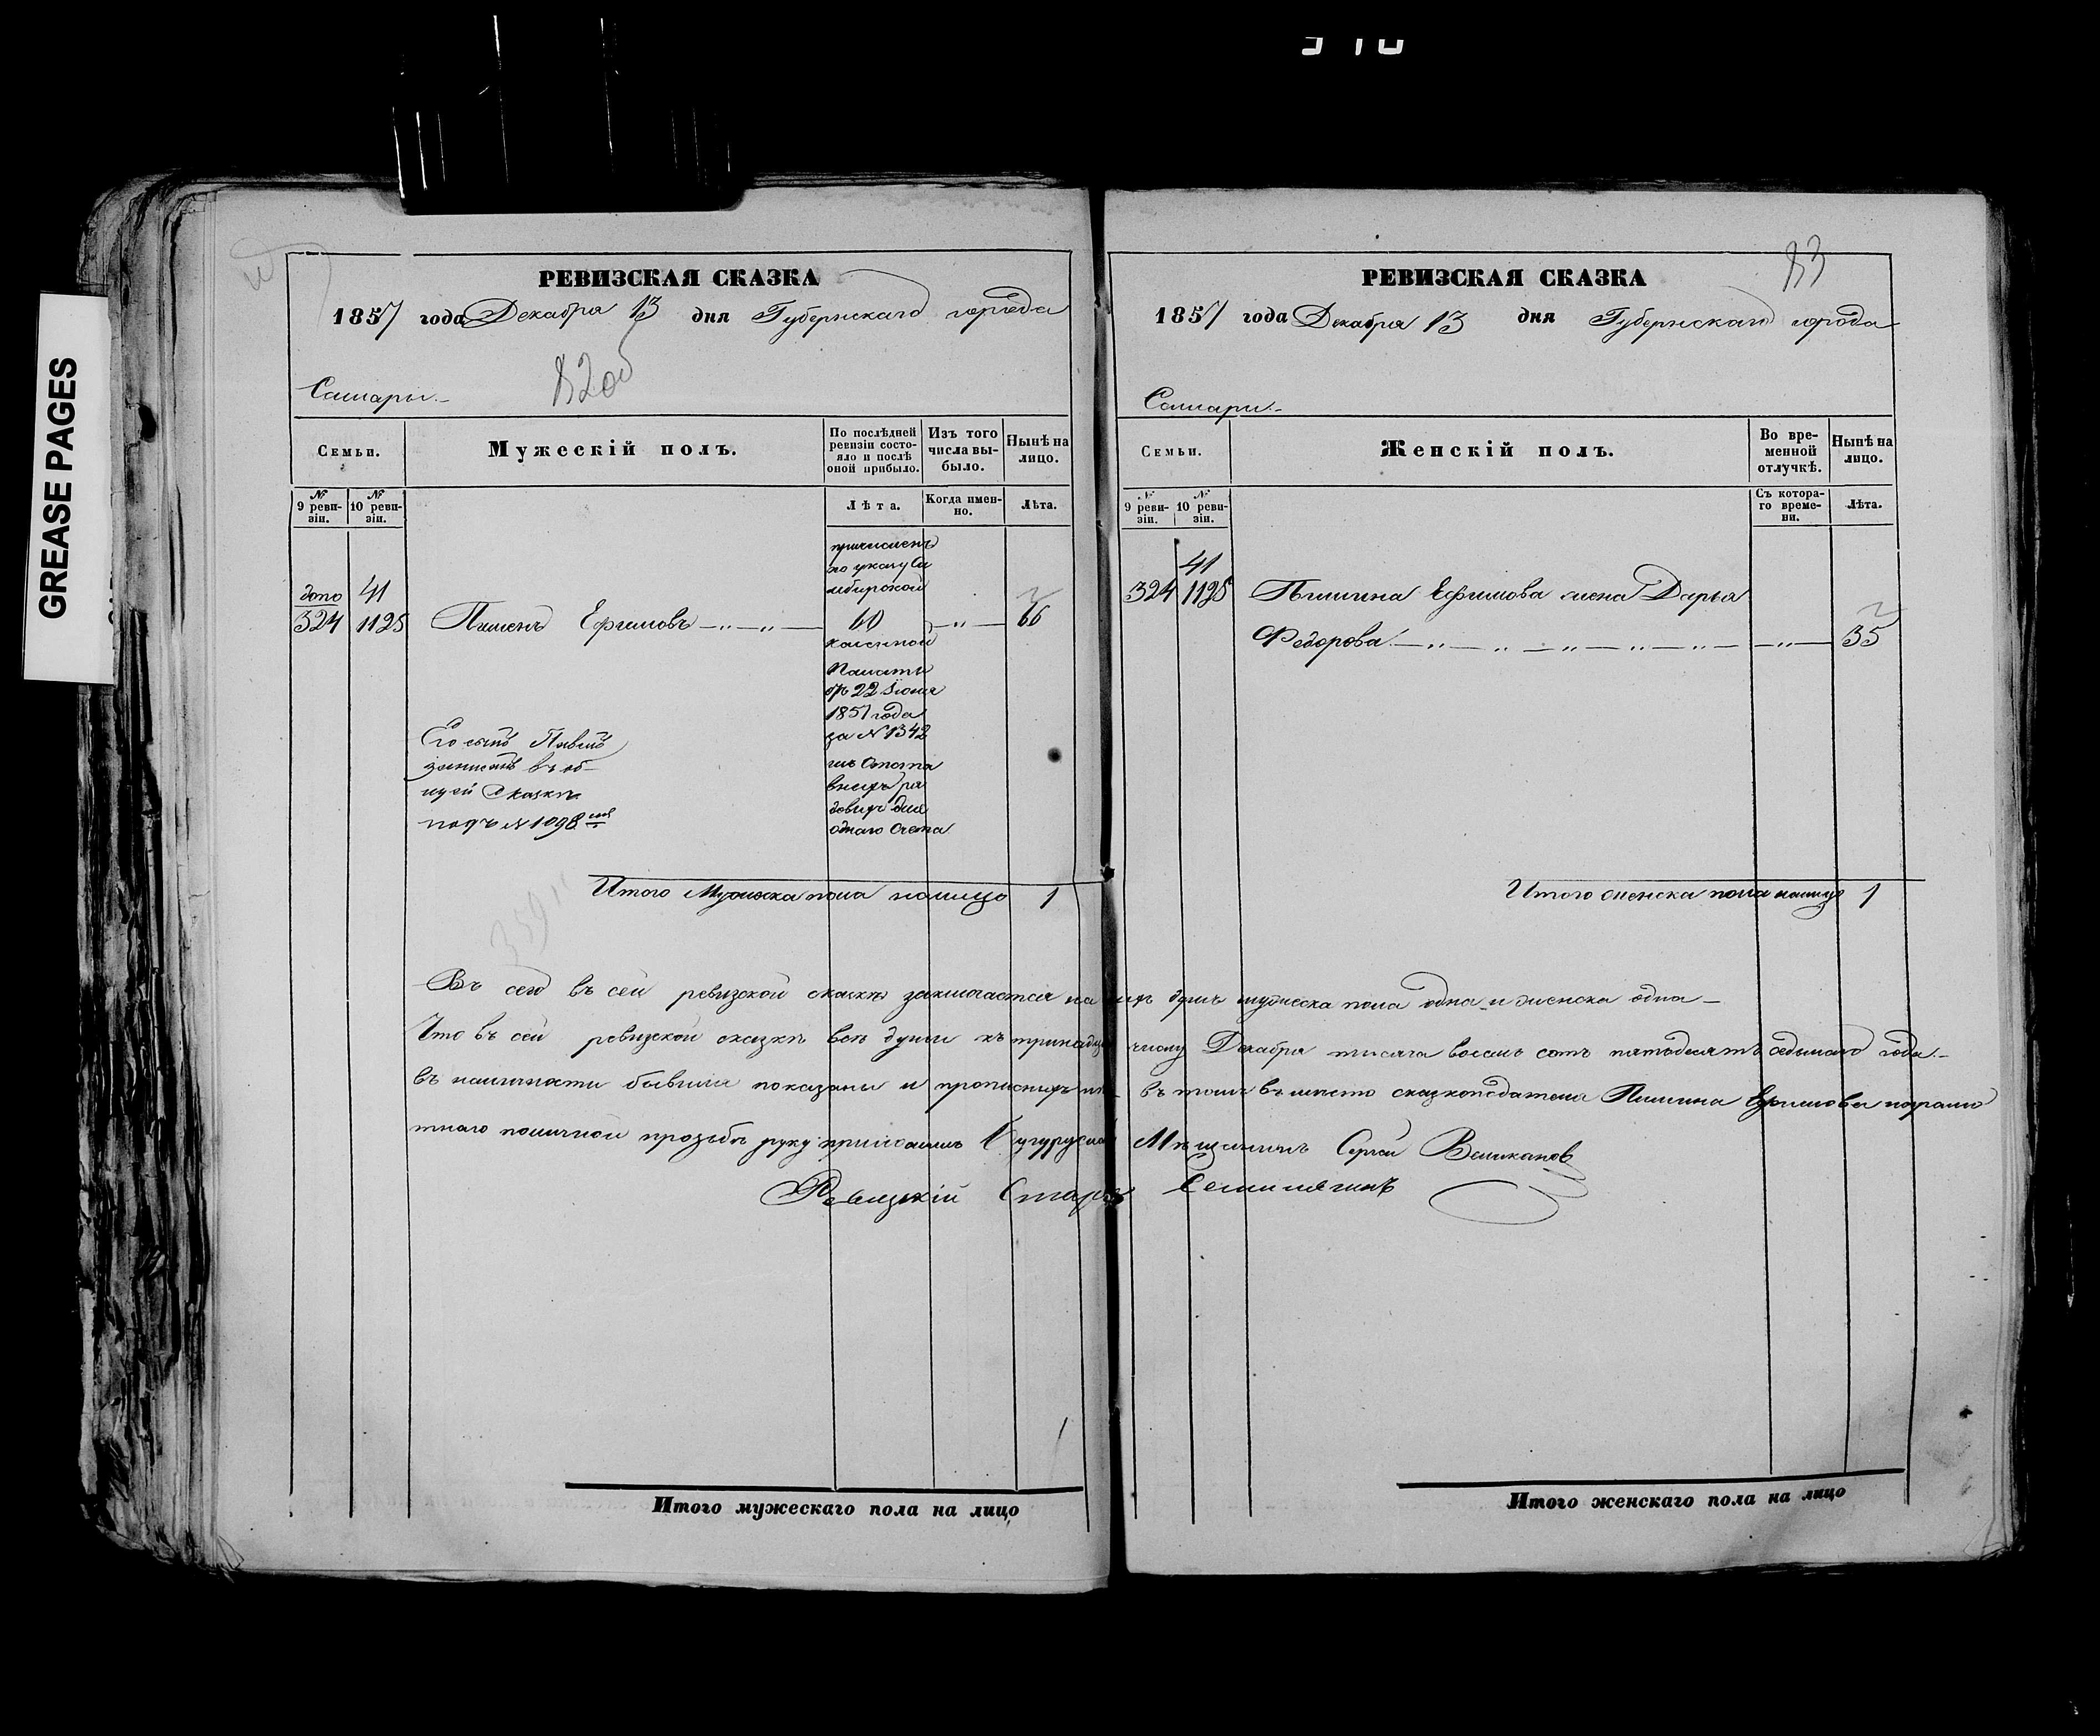 GREASE PAGES
РЕВИЗСКАЯ СКАЗКА
1857 года Декабря 13 дня Губернскаго города
82об
Самары.–
Семьи.
Мужескій полъ.
По послѣдней ревизіи состояло и послѣ оной прибыло.
Изъ того числа выбыло.
Нынѣ на лицо.
№ 9 ревизіи.
№ 10 ревизіи.
Лѣта.
Когда именно.
Лѣта.
причисленъ
по указу Си
мбирской
допо 41
324 1125 Пименъ Ефимовъ –„–„– 60 –„– 66
казенной
Палаты
отъ 22 Іюня
1857 года
за № 1342
изъ Отста
вныхъ ря
довыхъ для
однаго счета
Его сынъ
записанъ въ об–
щей Сказкѣ
подъ № 1098
Итого Мужеска пола налицо 1
РЕВИЗСКАЯ СКАЗКА
83
1857 года Декабря 13 дня Губернскаго города
Самары.–
Семьи.
Женскій полъ.
Во временной отлучкѣ.
Нынѣ на лицо.
№ 9 ревизіи.
№ 10 ревизіи.
Съ котораго времени.
Лѣта.
41
324 1125 Пимина Ефимова жена Дарья
Федорова.–„–„–„–„–„– –„– 35
Итого женска пола налицо 1
въ сей ревизской сказкѣ заключается на лицо душъ мужеска пола одна и женска одна –
Что въ сей ревизской сказкѣ всѣ души къ тринадца тому Декабря тысяча восемь сотъ пятьдесятъ седьмаго года –
въ наличности бывшія показаны и прописныхъ нѣтъ въ томъ вмѣсто сказкоподателя Пимина Ефимова неграмо
тнаго поличной прозьбѣ руку приложилъ Мѣщанинъ Сергей Великановъ
Ревизскій Старо
Итого мужескаго пола на лицо
Итого женскаго пола на лицо